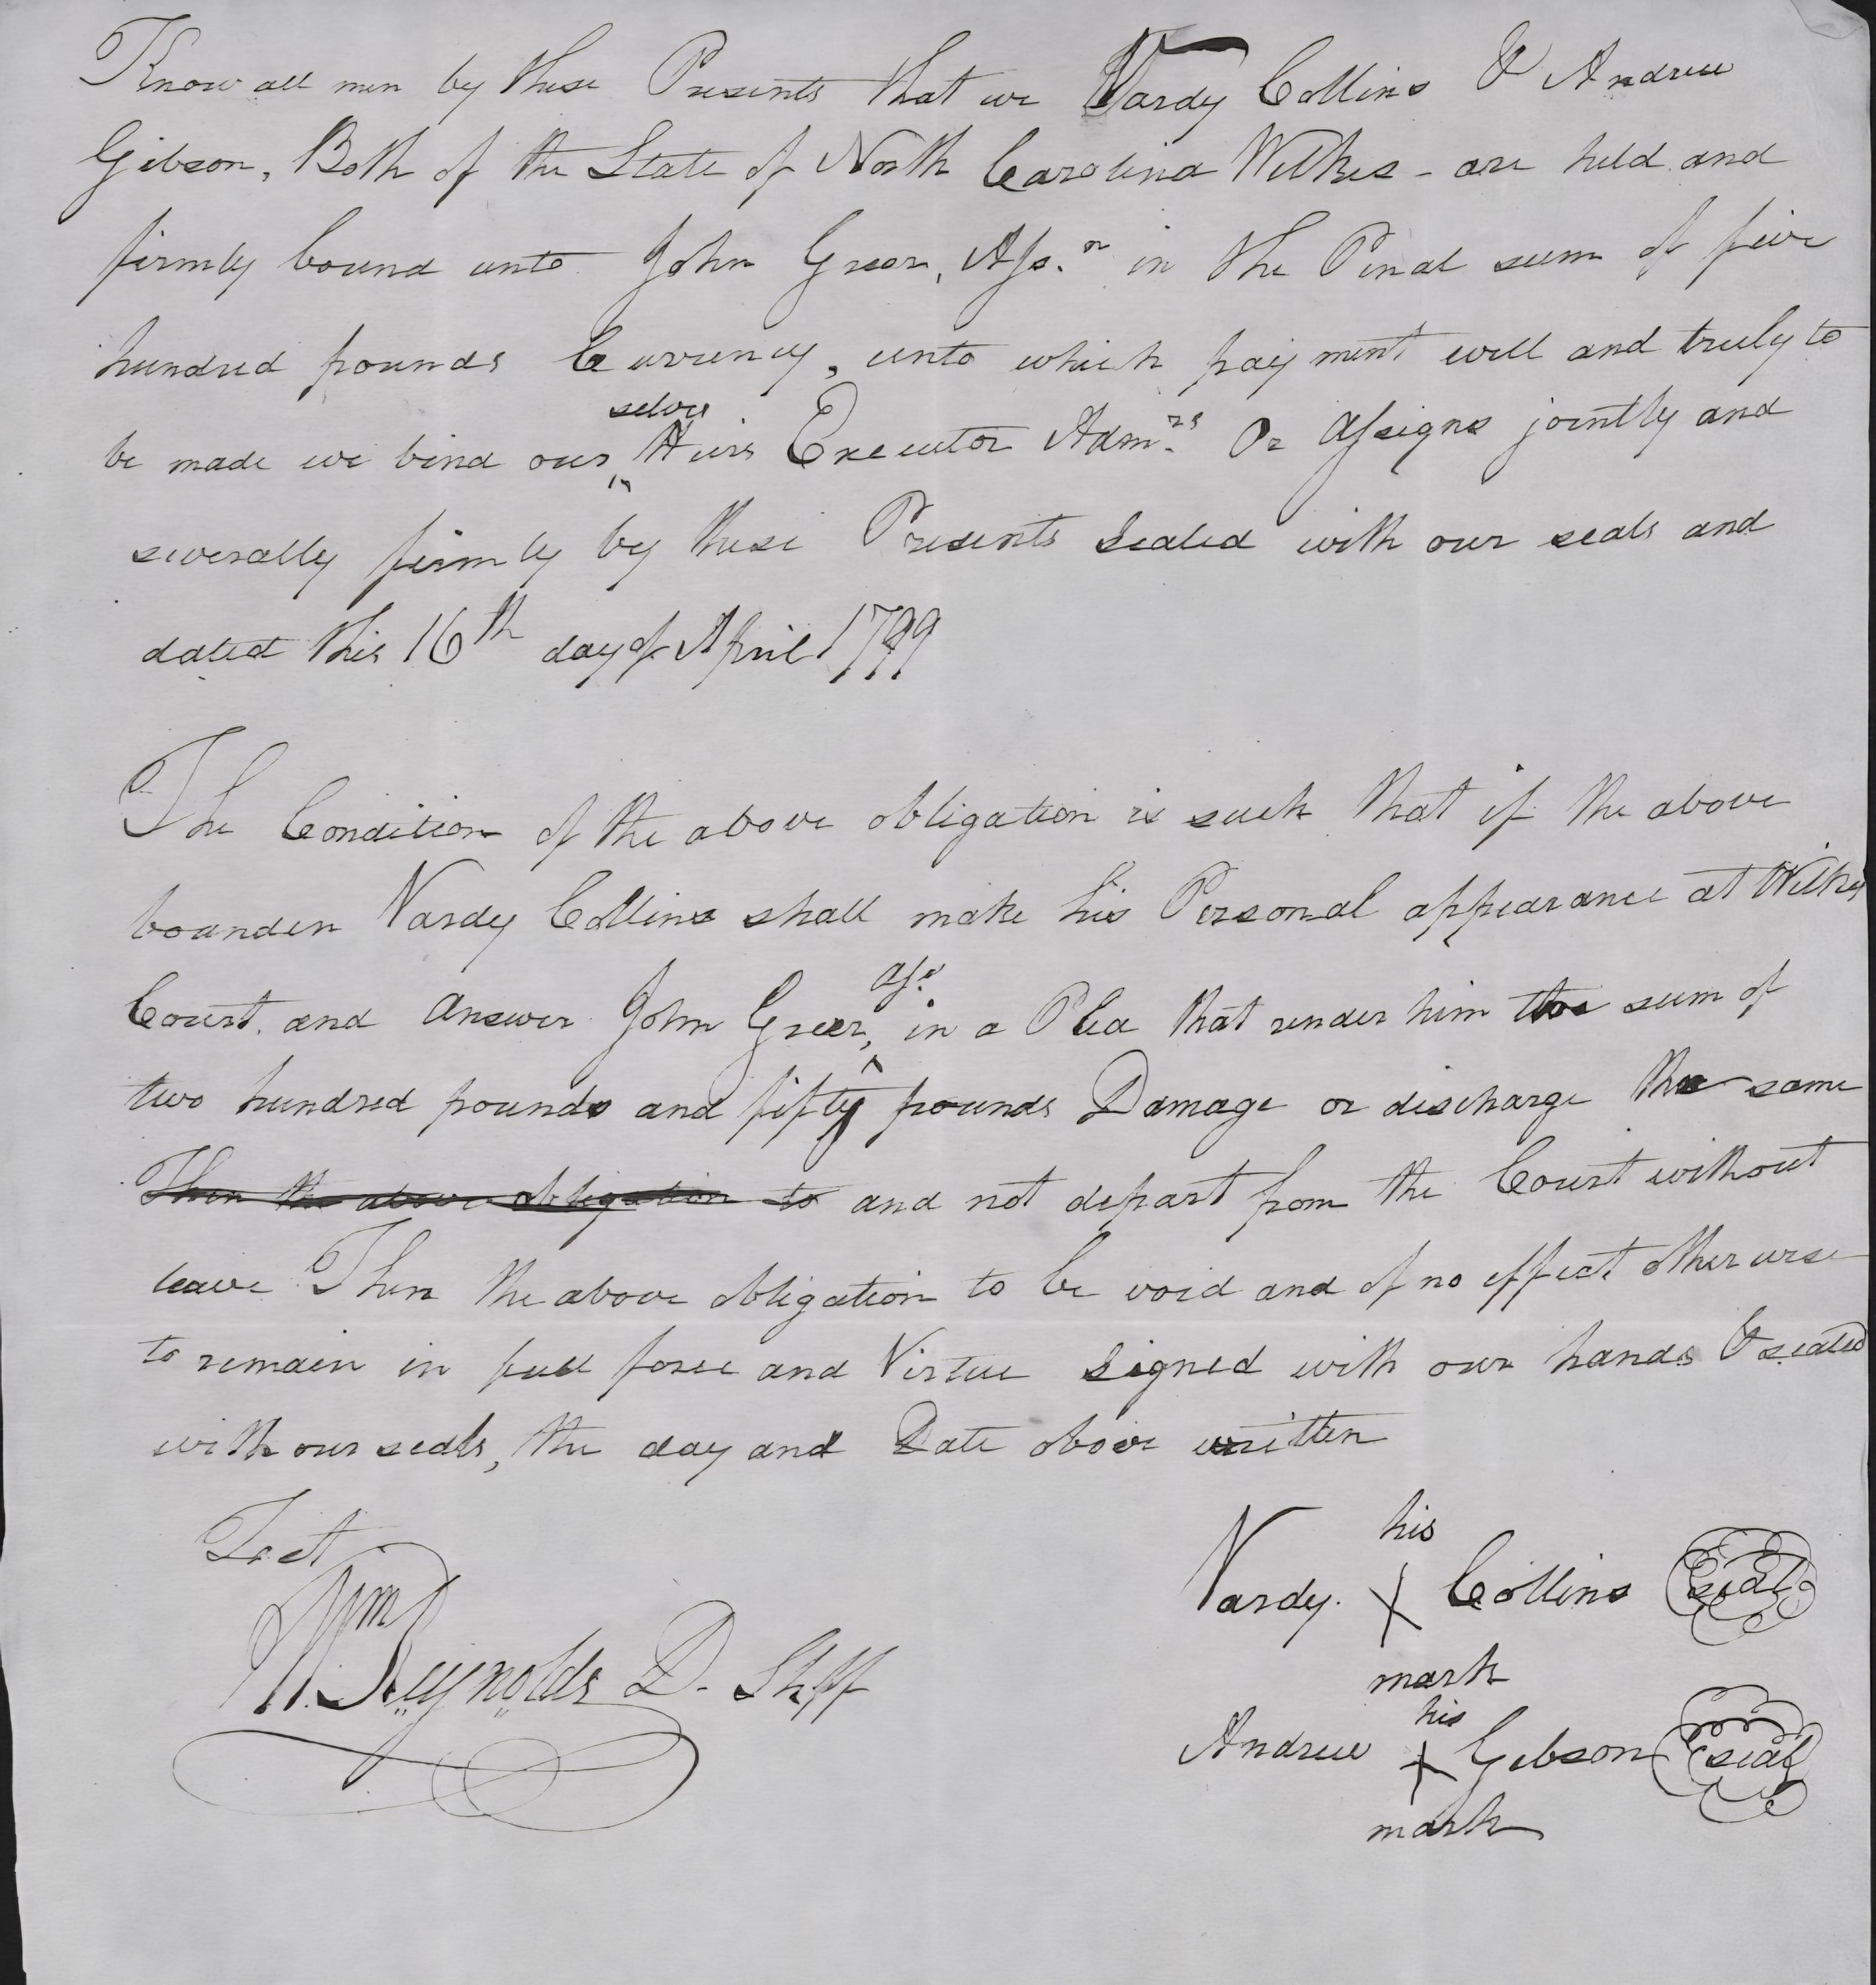 Know all men by these Presents that we Vardy Collins & Andrew
Gibson, Both of the State of North Carolina Wilkes - are held and
firmly bound unto John Greer, Ass.r in the Penal sum of five
hundred pounds Currency, unto which payment well and truly to
be made we bind our selves Heirs Executor Adm.rs Or Assigns jointly and
severally firmly by these Presents Sealed with our seals and
dated this 16th day of April 1799
The Condition of the above obligation is such that if the above
bounden Vardy Collins shall make his Personal appearance at Wilkes
Court. and Answer John Greer, Ass.r in a Plea that render him the sum of
two hundred pounds and fifty pounds Damage or discharge the same
Then the above obligation to and not depart from the Court without
leave Then the above obligation to be void and of no effect otherwise
to remain in full force and Virtue Signed with our hands & sealed
with our seals, the day and Date above written
Test
Wm Reynolds D. Shff
his
Vardy. X Collins seal
mark
his
Andrew X Gibson seal
mark